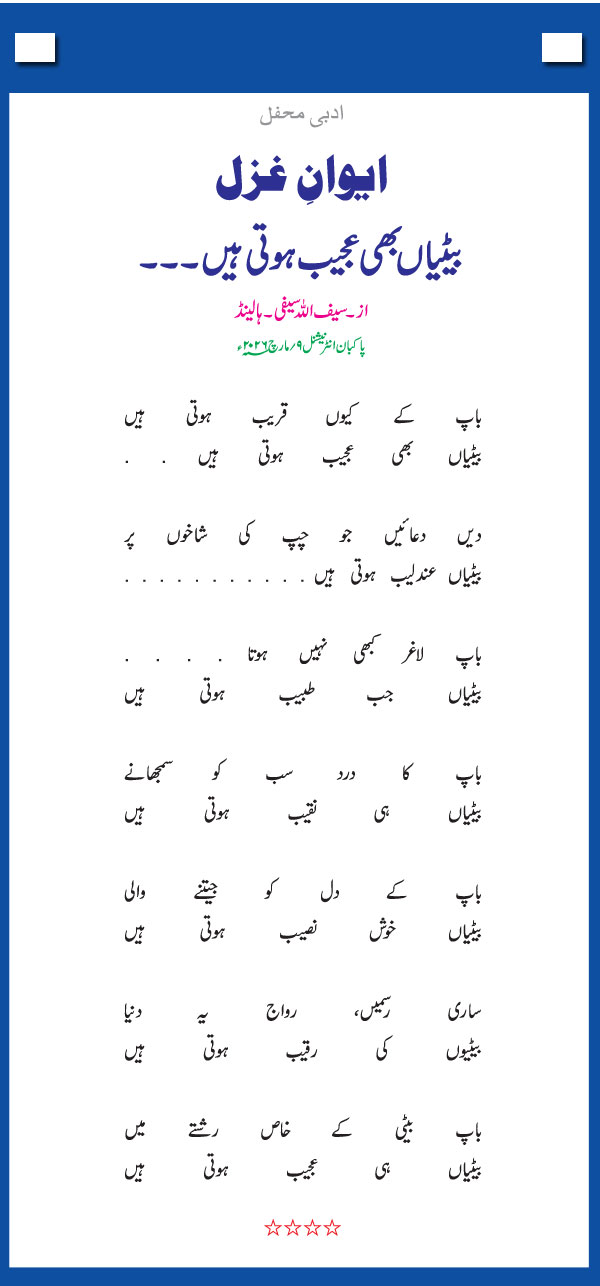 ادبی محفل
ایوانِ غزل
بیٹیاں بھی عجیب ہوتی ہیں ۔۔۔
از ۔ سیف اللہ سیفی ۔ ہالینڈ
پاکبان انٹرنیشنل ۹؍ مارچ ۲۰۲۶ء
باپ کے کیوں قریب ہوتی ہیں
بیٹیاں بھی عجیب ہوتی ہیں . .
دیں دعائیں جو چپ کی شاخوں پر
بیٹیاں عندلیب ہوتی ہیں . . . . . . . . . . .
باپ لاغر کبھی نہیں ہوتا . . . .
بیٹیاں جب طبیب ہوتی ہیں
باپ کا درد سب کو سمجھانے
بیٹیاں ہی نقیب ہوتی ہیں
باپ کے دل کو جیتنے والی
بیٹیاں خوش نصیب ہوتی ہیں
ساری رسمیں، رواج یہ دنیا
بیٹیوں کی رقیب ہوتی ہیں
باپ بیٹی کے خاص رشتے میں
بیٹیاں ہی عجیب ہوتی ہیں
☆☆☆☆